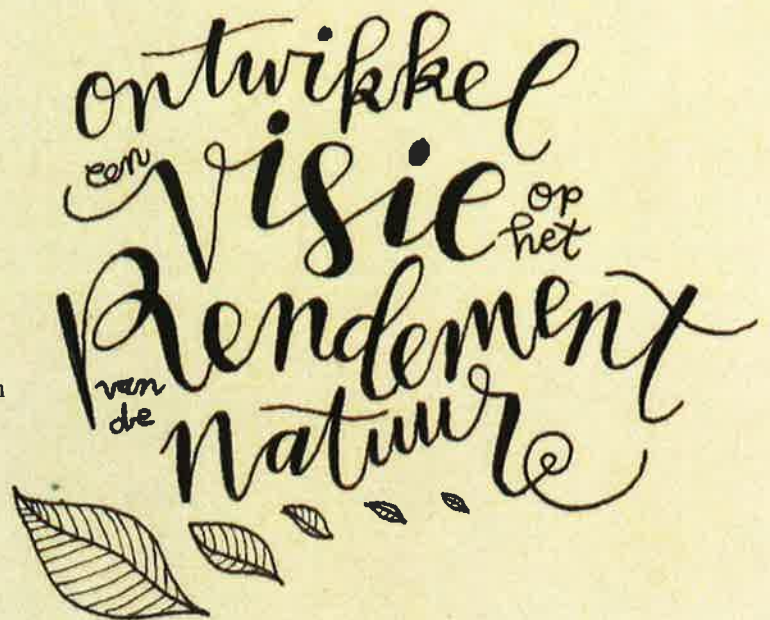 ontwikkel
een visie op
het
Rendement
van
de natuur